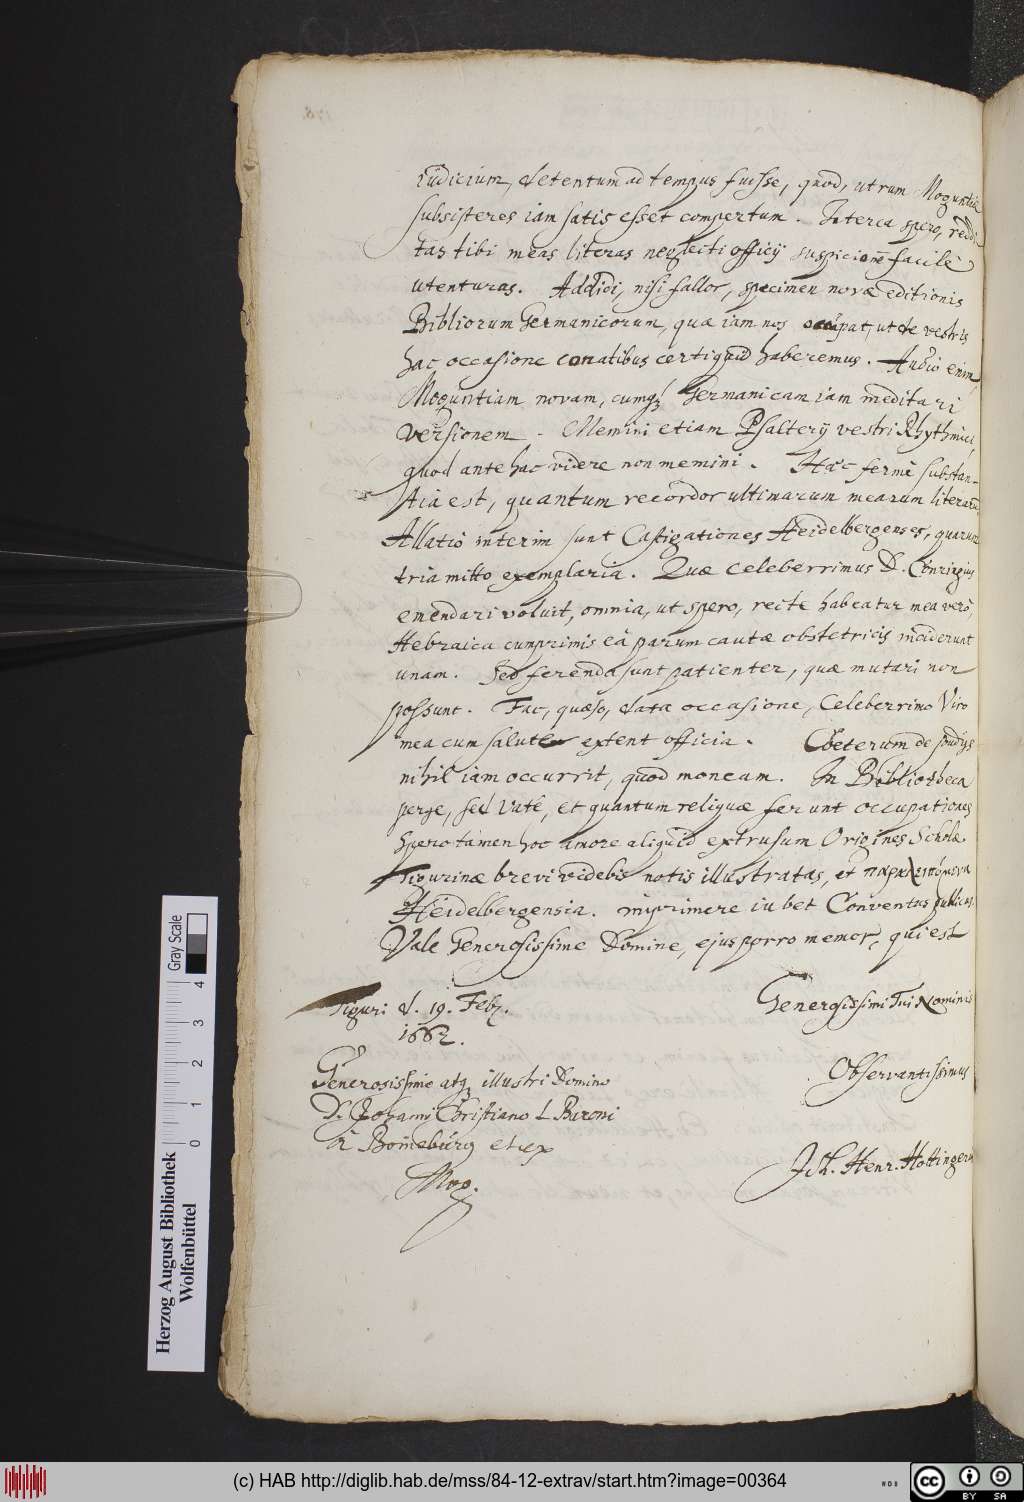 iudicium, detentum ad tempus fuisse, quod, utrum Moguntiæ
subsisteres iam satis esset compertum. Interea spero, reddi
tas tibi meas literas neglecti officÿ suspicione facile
utenturas. Addidi, nisi fallor, specimen novæ editionis
Bibliorum Germanicorum, quæ iam nos occupat, ut de vestris
hac occasione conatibus certi quid haberemus. Audio enim,
Moguntiam novam, eumq; Germanicam iam meditari
versionem. Memini etiam Psalterÿ vestri Rhythmici
quod ante hac videre non memini. Hæc fermè substan-
tia est, quantum recordor ultimarum mearum literarũ
Allatiò interim sunt Castigationes Heidelbergenses, quarum
tria mitto exemplaria. Quæ celeberrimus D. Conringius
emendari voluit, omnia, ut spero, recte habeatur mea verò,
Hebraica cumprimis eâ parum cautæ obstetricis inciderunt
unam. Sed ferenda sunt patienter, quæ mutari non
possunt. Fac, quæso, data occasione, Celeberrimo Viro
mea cum salute extent officia. Cæterum de studÿs
nihil iam occurrit, quod moneam. In Bibliotheca
perge, sed lute, et quantum reliquæ ferunt occupationes
spero tamen hoc amore aliquid extrusum Origines Scholæ
Tigurinæ brevi videbis notis illustratas, et
Heidelbergensia. imprimere iubet Conventus publicus.
Vale Generosissime Domine, ejus porro memor, qui est
Tiguri d. 19. Febr. Generosissimi Tui Nominis
1662.
Observantissimus
Generosissime atq; illustri Domino
D. Johanni Christiano L. Baroni
à Boineburg etc.
Joh. Henr. Hottingerus
Mog.
Gray Scale
0 1 2 3 4
Herzog August Bibliothek
Wolfenbüttel
(c) HAB http://diglib.hab.de/mss/84-12-extrav/start.htm?image=00364
cc BY SA